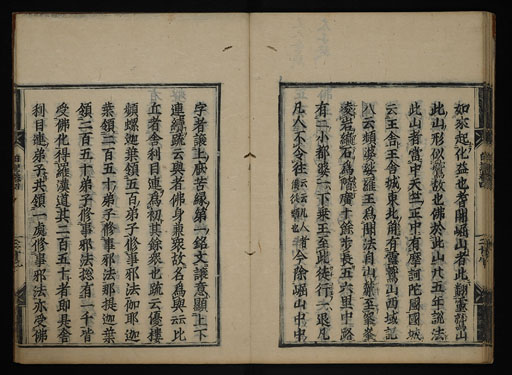 如來起化益也耆闍崛山者此翻靈鷲山
此山形似鷲故也佛於此山八五年說法
此山者當中天正中有摩訶陀國國城
云王舍王舍城東北角有靈鷲山西域記
八云頻婆娑羅王爲聞法自山麓至峯岑
岩編石爲階廣十餘步長五六里中路
有二小都婆一下乘王至此徒行一退凡
凡人不令往云云凡人者今除崛山中中
字者讓上厭苦緣第一銘文讓意顯上下
連續疏云與者佛身兼衆故名爲與云比
丘者舍利目連爲初其餘衆也疏云優樓
頻螺迦葉領五百弟子修事邪法伽耶迦
葉領二百五十弟子修事邪法那提迦葉
領二百五十弟子修事邪法惣有一千皆
受佛化得羅漢道其二百五十者即具舍
利目連弟子共領一處修事邪法亦受佛